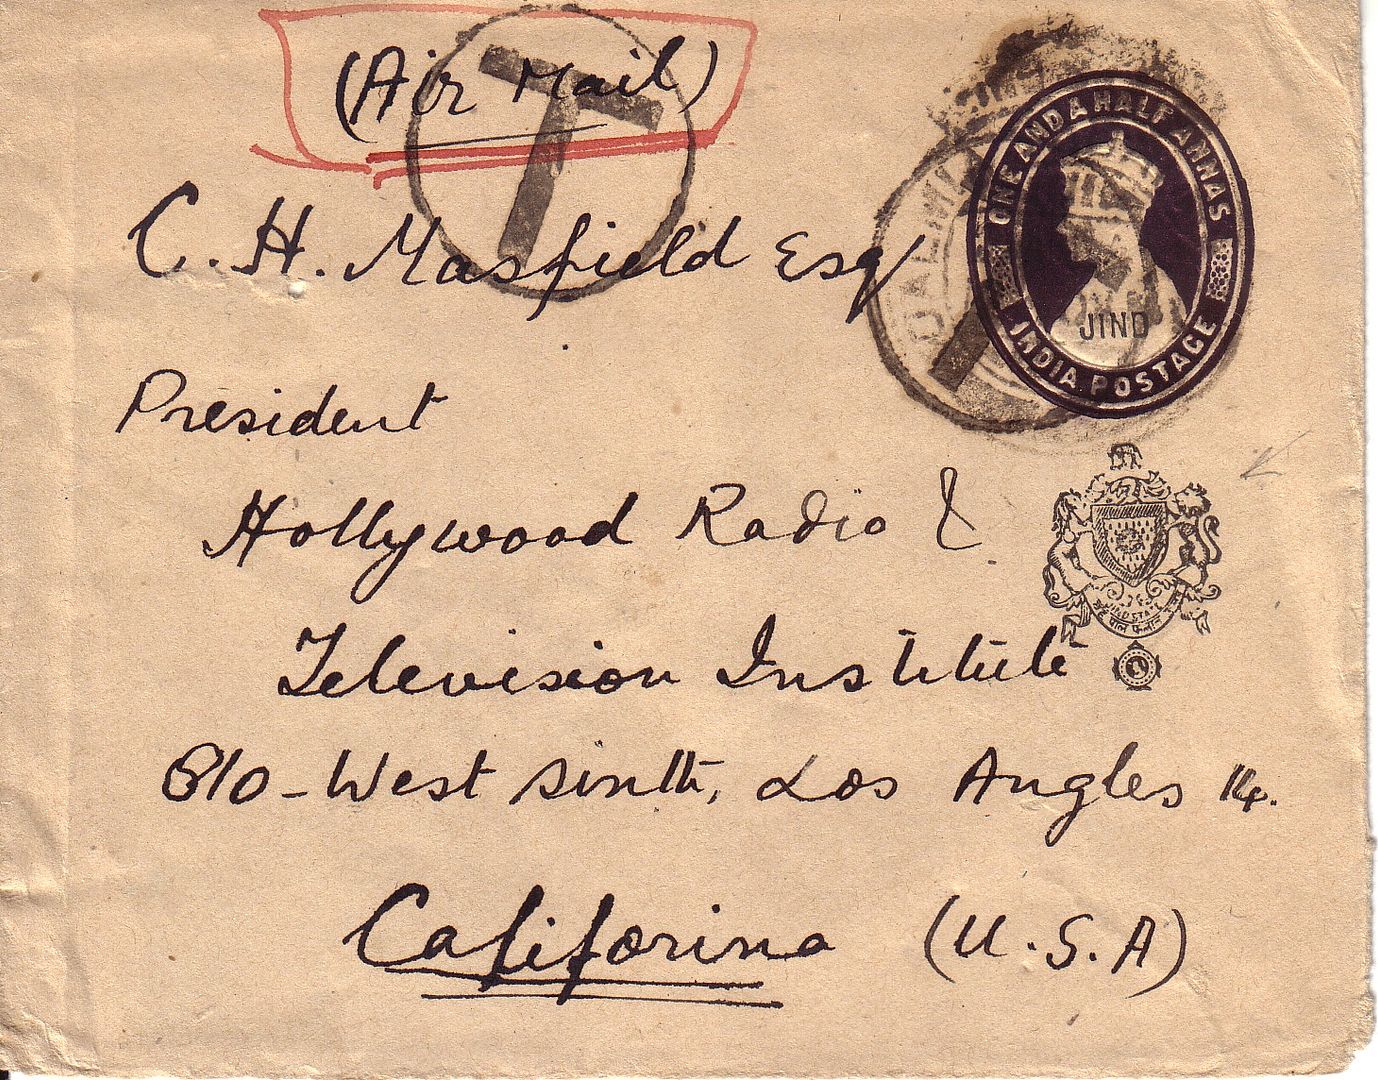 (Air Mail)
T
ONE AND A HALF ANNAS
INDIA POSTAGE
JIND
C. H. Masfield Esq
President
Hollywood Radio &
Television Institute
JIND STATE
810 - West sinth, Los Angles 14.
Califorina (U.S.A)